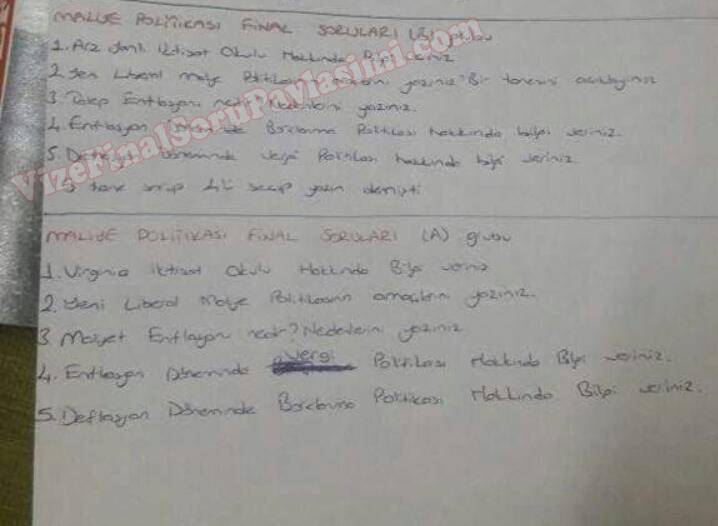 MALİYE POLİTİKASI FİNAL SORULARI (B) grubu
1. Arz Yanlı İktisat Okulu Hakkında Bilgi veriniz
2. Yeni Liberal Maliye Politikasının yazınız Bir tanesini açıklayınız
3. Talep Enflasyonu nedir Nedenlerini yazınız.
4. Enflasyon Döneminde Borçlanma Politikası hakkında bilgi veriniz.
5. Deflasyon Döneminde vergi Politikası hakkında bilgi veriniz
5 tane sorup seçip yazın demişti
VizeFinalSoruPaylasimi.com
MALİYE POLİTİKASI FİNAL SORULARI (A) grubu
1. Virginia iktisat Okulu Hakkında Bilgi veriniz
2. Yeni Liberal Maliye Politikasının amaçlarını yazınız.
3. Maliyet Enflasyonu nedir? Nedenlerini yazınız
4. Enflasyon Döneminde vergi Politikası Hakkında Bilgi veriniz.
5. Deflasyon Döneminde Borçlanma Politikası Hakkında Bilgi veriniz.